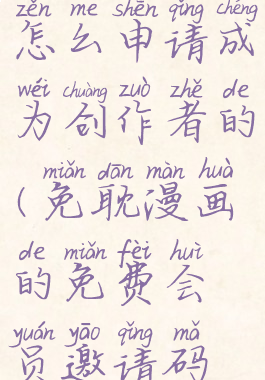 zěn me shēn qǐng chéng
怎么申请成
wéi chuàng zuò zhě de
为创作者的
miǎn dān màn huà
(免耽漫画
de miǎn fèi huì
的免费会
yuán yāo qǐng mǎ
员邀请码